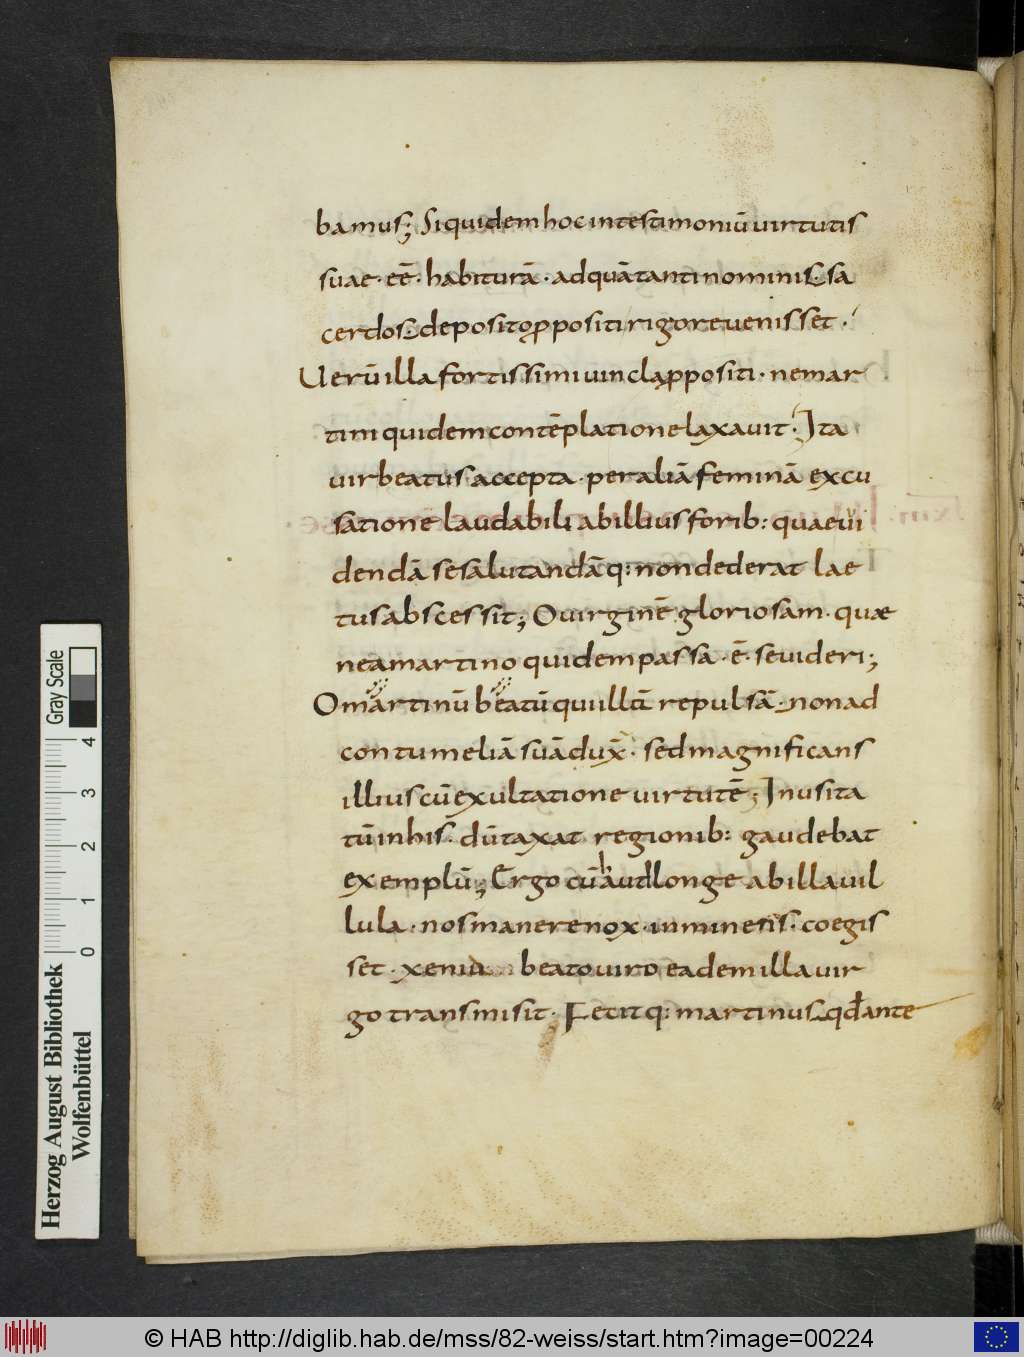 bamus; Siquidem hoc in testimoniū uirtutis
suae · eē · habiturā · ad quā tanti nominis · sa
cerdos · deposito ꝓpositi rigore uenisset ·
Uerū illa fortissimi uincla ꝓpositi · ne mar
tini quidem contēplatione laxauit · Ita
uir beatus accepta · per aliā feminā excu
satione laudabili ab illius forib: quae ui
dendā se salutandāq: non dederat lae
tus abscessit; O uirginē gloriosam · quae
ne a martino quidem passa · ē · se uideri;
O martinū beatū qui illā repulsā · non ad
contumeliā suā dux̄ · sed magnificans
illius cū exultatione uirtutē; Inusita
tū in his · dūtaxat regionib: gaudebat
exemplū; Ergo cū haud longe ab illa uil
lula · nos manere nox · inminens · coegis
set · xeniū beato uiro eadem illa uir
go transmisit · Fecitq: martinus qđ ante
Herzog August Bibliothek
Wolfenbüttel
0 1 2 3 4
Gray Scale
© HAB http://diglib.hab.de/mss/82-weiss/start.htm?image=00224